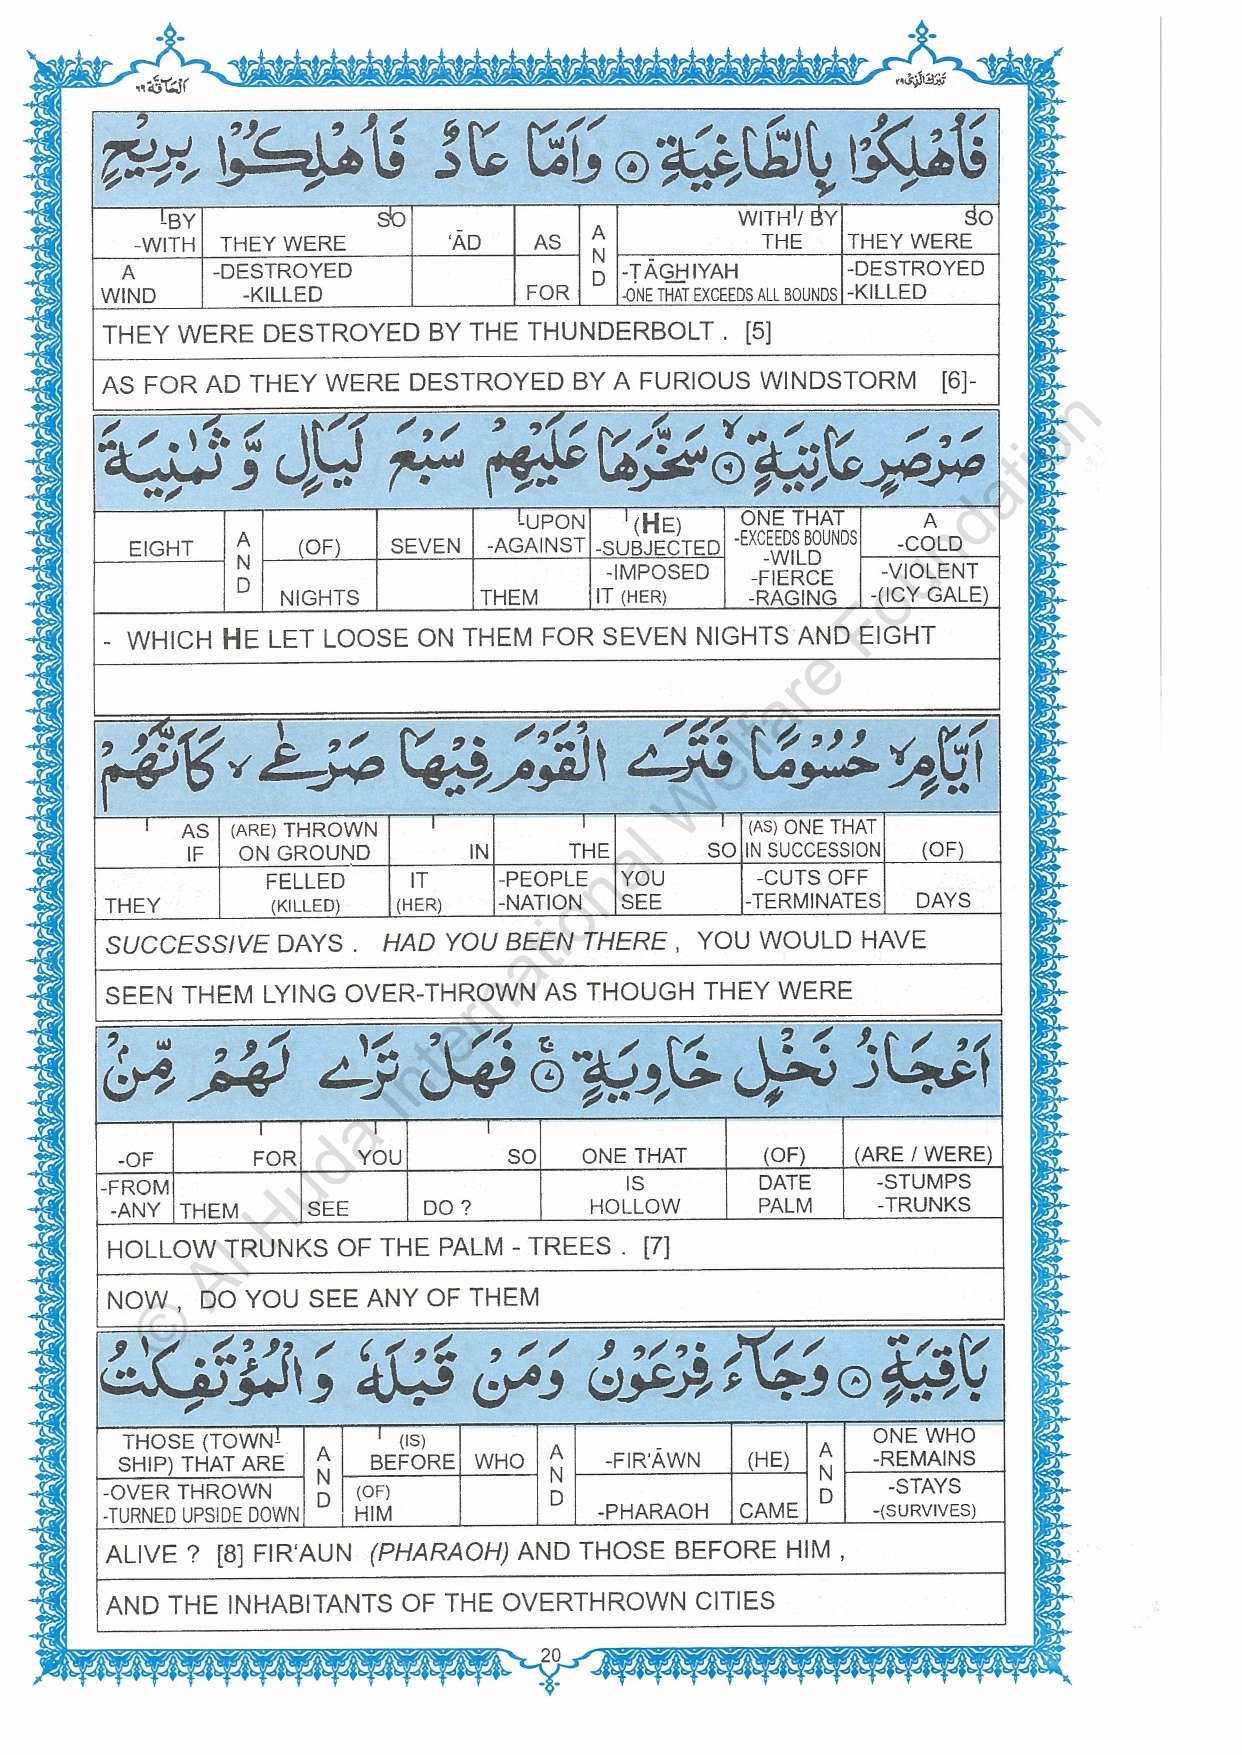 اَلْحَآقَّة ٦٩
تَبٰرَكَ الَّذِىْ ٢٩
فَاُهْلِكُوْا بِالطَّاغِيَةِ ۵ وَاَمَّا عَادٌ فَاُهْلِكُوْا بِرِيْحٍ
-BY SO WITH / BY SO
-WITH THEY WERE ‘ĀD AS AND THE THEY WERE
A -DESTROYED -ṬĀGHIYAH -DESTROYED
WIND -KILLED FOR -ONE THAT EXCEEDS ALL BOUNDS -KILLED
THEY WERE DESTROYED BY THE THUNDERBOLT . [5]
AS FOR AD THEY WERE DESTROYED BY A FURIOUS WINDSTORM [6]-
صَرْصَرٍ عَاتِيَةٍ ۙ ٦ سَخَّرَهَا عَلَيْهِمْ سَبْعَ لَيَالٍ وَّ ثَمٰنِيَةَ
EIGHT AND (OF) SEVEN -UPON (HE) ONE THAT A
-AGAINST -SUBJECTED -EXCEEDS BOUNDS -COLD
-IMPOSED -WILD -VIOLENT
NIGHTS THEM IT (HER) -FIERCE -(ICY GALE)
-RAGING
- WHICH HE LET LOOSE ON THEM FOR SEVEN NIGHTS AND EIGHT
اَيَّامٍ ۙ حُسُوْمًا فَتَرَى الْقَوْمَ فِيْهَا صَرْعٰى ۙ كَاَنَّهُمْ
AS (ARE) THROWN (AS) ONE THAT
IF ON GROUND IN THE SO IN SUCCESSION (OF)
FELLED IT -PEOPLE YOU -CUTS OFF
THEY (KILLED) (HER) -NATION SEE -TERMINATES DAYS
SUCCESSIVE DAYS . HAD YOU BEEN THERE , YOU WOULD HAVE
SEEN THEM LYING OVER-THROWN AS THOUGH THEY WERE
اَعْجَازُ نَخْلٍ خَاوِيَةٍ ۚ ٧ فَهَلْ تَرٰى لَهُمْ مِّنْۢ
-OF FOR YOU SO ONE THAT (OF) (ARE / WERE)
-FROM IS DATE -STUMPS
-ANY THEM SEE DO ? HOLLOW PALM -TRUNKS
HOLLOW TRUNKS OF THE PALM - TREES . [7]
NOW , DO YOU SEE ANY OF THEM
بَاقِيَةٍ ٨ وَجَآءَ فِرْعَوْنُ وَمَنْ قَبْلَهٗ وَالْمُؤْتَفِكٰتُ
THOSE (TOWN- AND (IS) AND AND ONE WHO
SHIP) THAT ARE BEFORE WHO -FIR‘ĀWN (HE) -REMAINS
-OVER THROWN (OF) -STAYS
-TURNED UPSIDE DOWN HIM -PHARAOH CAME -(SURVIVES)
ALIVE ? [8] FIR‘AUN (PHARAOH) AND THOSE BEFORE HIM ,
AND THE INHABITANTS OF THE OVERTHROWN CITIES
20
© Al-Huda International Welfare Foundation